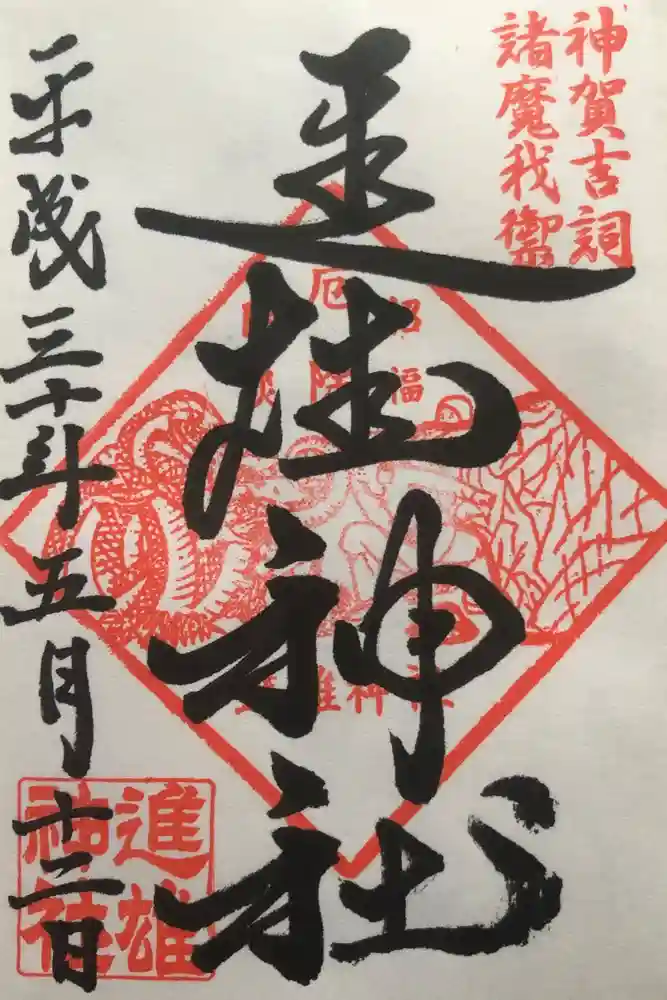 神賀吉詞
諸魔我禦
進雄神社
招福
厄除
進雄神社
進雄
神社
平成三十年五月十二日